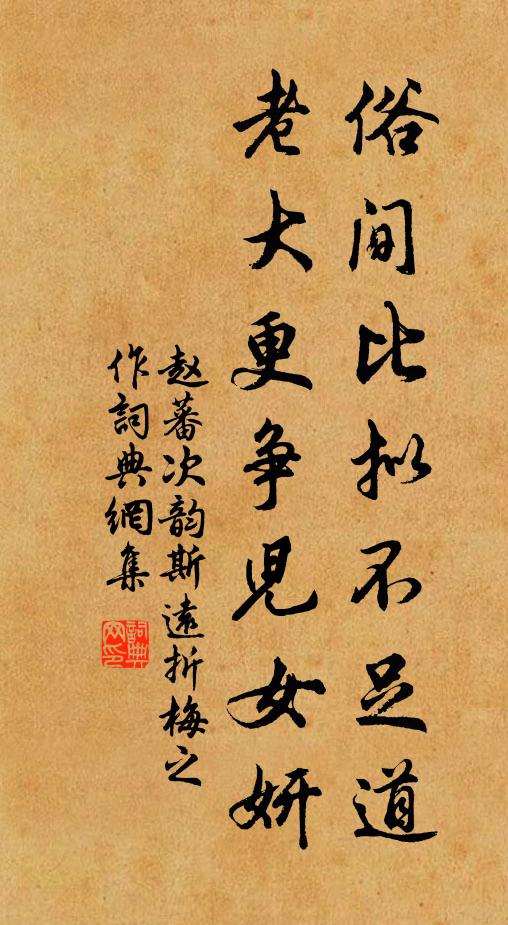 俗间比拟不足道
老大更争児女妍
赵蕃次韵斯遠折梅之
作詞典網集
詞典網印